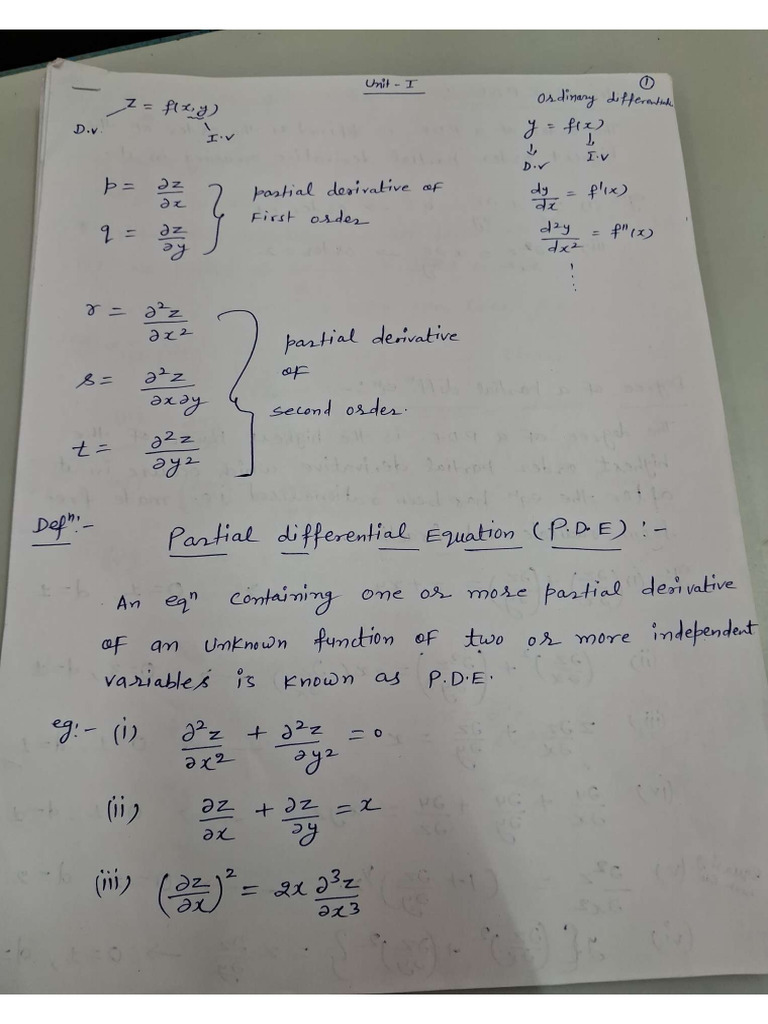 Unit - I
①
Z = f(x,y)
D.V
I.V
Ordinary differential
y = f(x)
↓ ↓
D.V I.V
dy/dx = f'(x)
d²y/dx² = f"(x)
⋮
p = ∂z/∂x
q = ∂z/∂y
partial derivative of
First order
r = ∂²z/∂x²
s = ∂²z/∂x∂y
t = ∂²z/∂y²
partial derivative
of
second order.
Defⁿ:- Partial differential Equation (P.D.E) :-
An eqⁿ containing one or more partial derivative
of an unknown function of two or more independent
variables is known as P.D.E.
eg:- (i) ∂²z/∂x² + ∂²z/∂y² = 0
(ii) ∂z/∂x + ∂z/∂y = x
(iii) (∂z/∂x)² = 2x ∂³z/∂x³